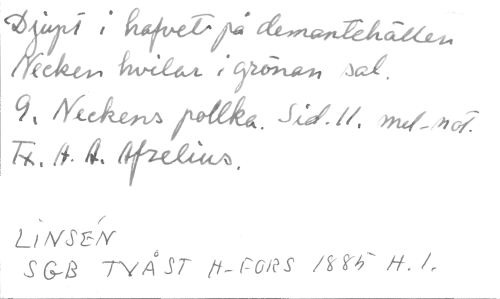 Djupt i hafvet på demantehällen
Necken hvilar i grönan sal.
9. Neckens pollka. Sid. 11. mel-not.
Tx. A. A. Afzelius.
LINSÉN
SGB TVÅST H-FORS 1885 H. 1.